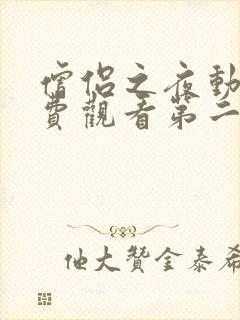 僧侶之夜動
費觀看第二
他大贊金泰希